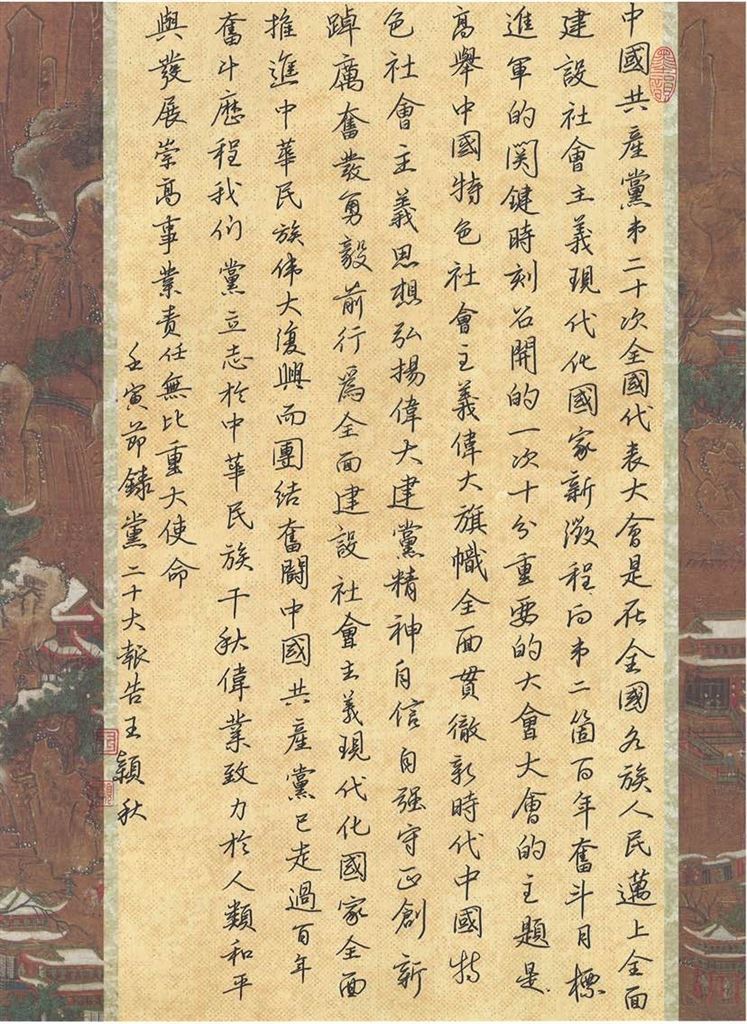 中國共產黨第二十次全國代表大會是在全國各族人民邁上全面
建設社會主義現代化國家新徵程向第二箇百年奮斗目標
進軍的関鍵時刻召開的一次十分重要的大會大會的主題是
高舉中國特色社會主義偉大旗幟全面貫徹新時代中國特
色社會主義思想弘揚偉大建黨精神自信自强守正創新
踔厲奮發勇毅前行爲全面建設社會主義現代化國家全面
推進中華民族伟大復興而團结奮鬪中國共產黨已走過百年
奮斗歷程我们黨立志於中華民族千秋偉業致力於人類和平
與發展崇高事業责任無比重大使命
壬寅節録黨二十大報告王穎秋